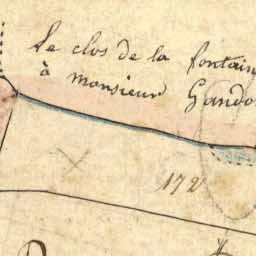 Le clos de la fontain
à monsieur Gando
172